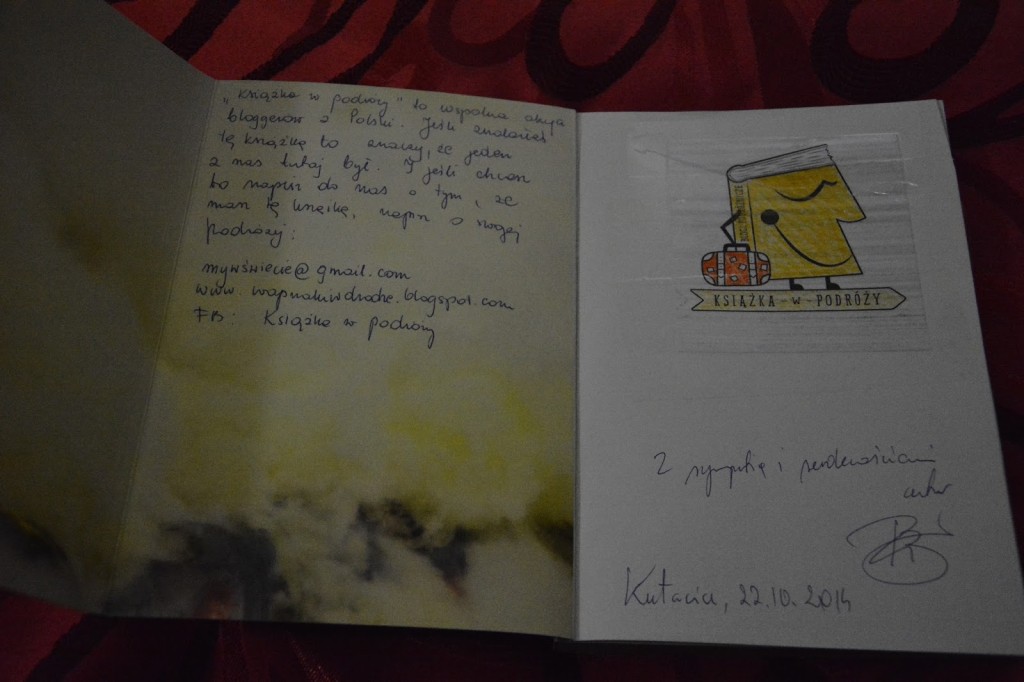 „Książka w podróży" to wspólna akcja
bloggerów z Polski. Jeśli znalazłeś
tę książkę to znaczy, że jeden
z nas tutaj był. I jeśli chcesz
to napisz do nas o tym, że
masz tę książkę, napisz o swojej
podróży:
mywświecie@gmail.com
www.wapniakiwdrodze.blogspot.com
FB: Książka w podróży
KSIĄŻKA - w - PODRÓŻY
Z sympatią i serdecznościami
autor
22.10.2014